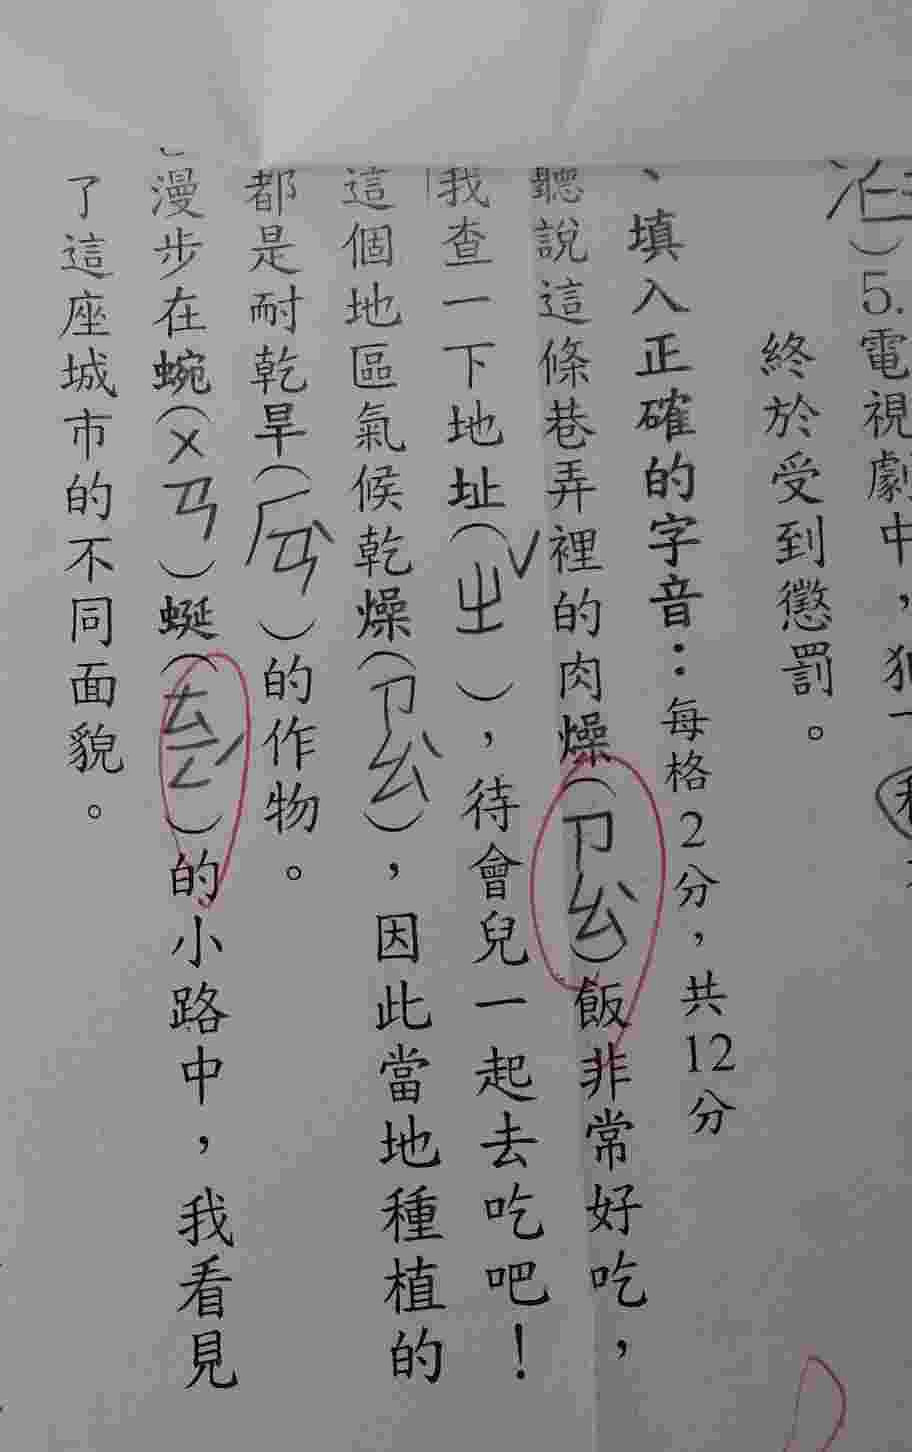 5.電視劇中,
終於受到懲罰。
、填入正確的字音:每格2分,共12分
聽說這條巷弄裡的肉燥(ㄗㄠ)飯非常好吃,
我查一下地址(ㄓˇ),待會兒一起去吃吧!
這個地區氣候乾燥(ㄗㄠ),因此當地種植的
都是耐乾旱(ㄏㄢˋ)的作物。
漫步在蜿(ㄨㄢ)蜒(ㄊㄧㄥˊ)的小路中,我看見
了這座城市的不同面貌。